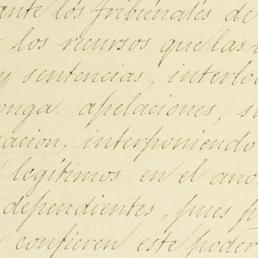 ante los Tribunales de
los recursos que las
y sentencias, interlo
onga apelaciones, s
acion, interponiendo
legítimos en el
dependientes, pues p
confieren este poder